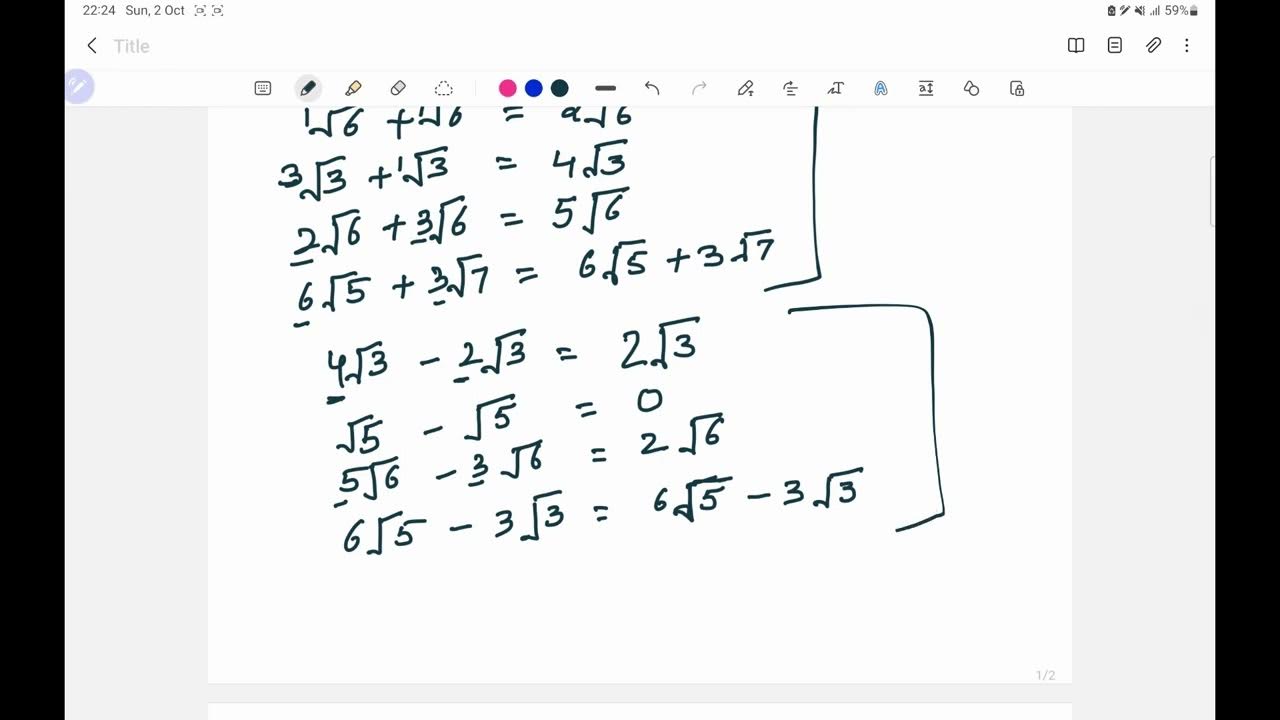 22:24 Sun, 2 Oct 59%
Title
1√6 + 1√6 = 2√6
3√3 + 1√3 = 4√3
2√6 + 3√6 = 5√6
6√5 + 3√7 = 6√5 + 3√7
4√3 - 2√3 = 2√3
√5 - √5 = 0
5√6 - 3√6 = 2√6
6√5 - 3√3 = 6√5 - 3√3
1/2